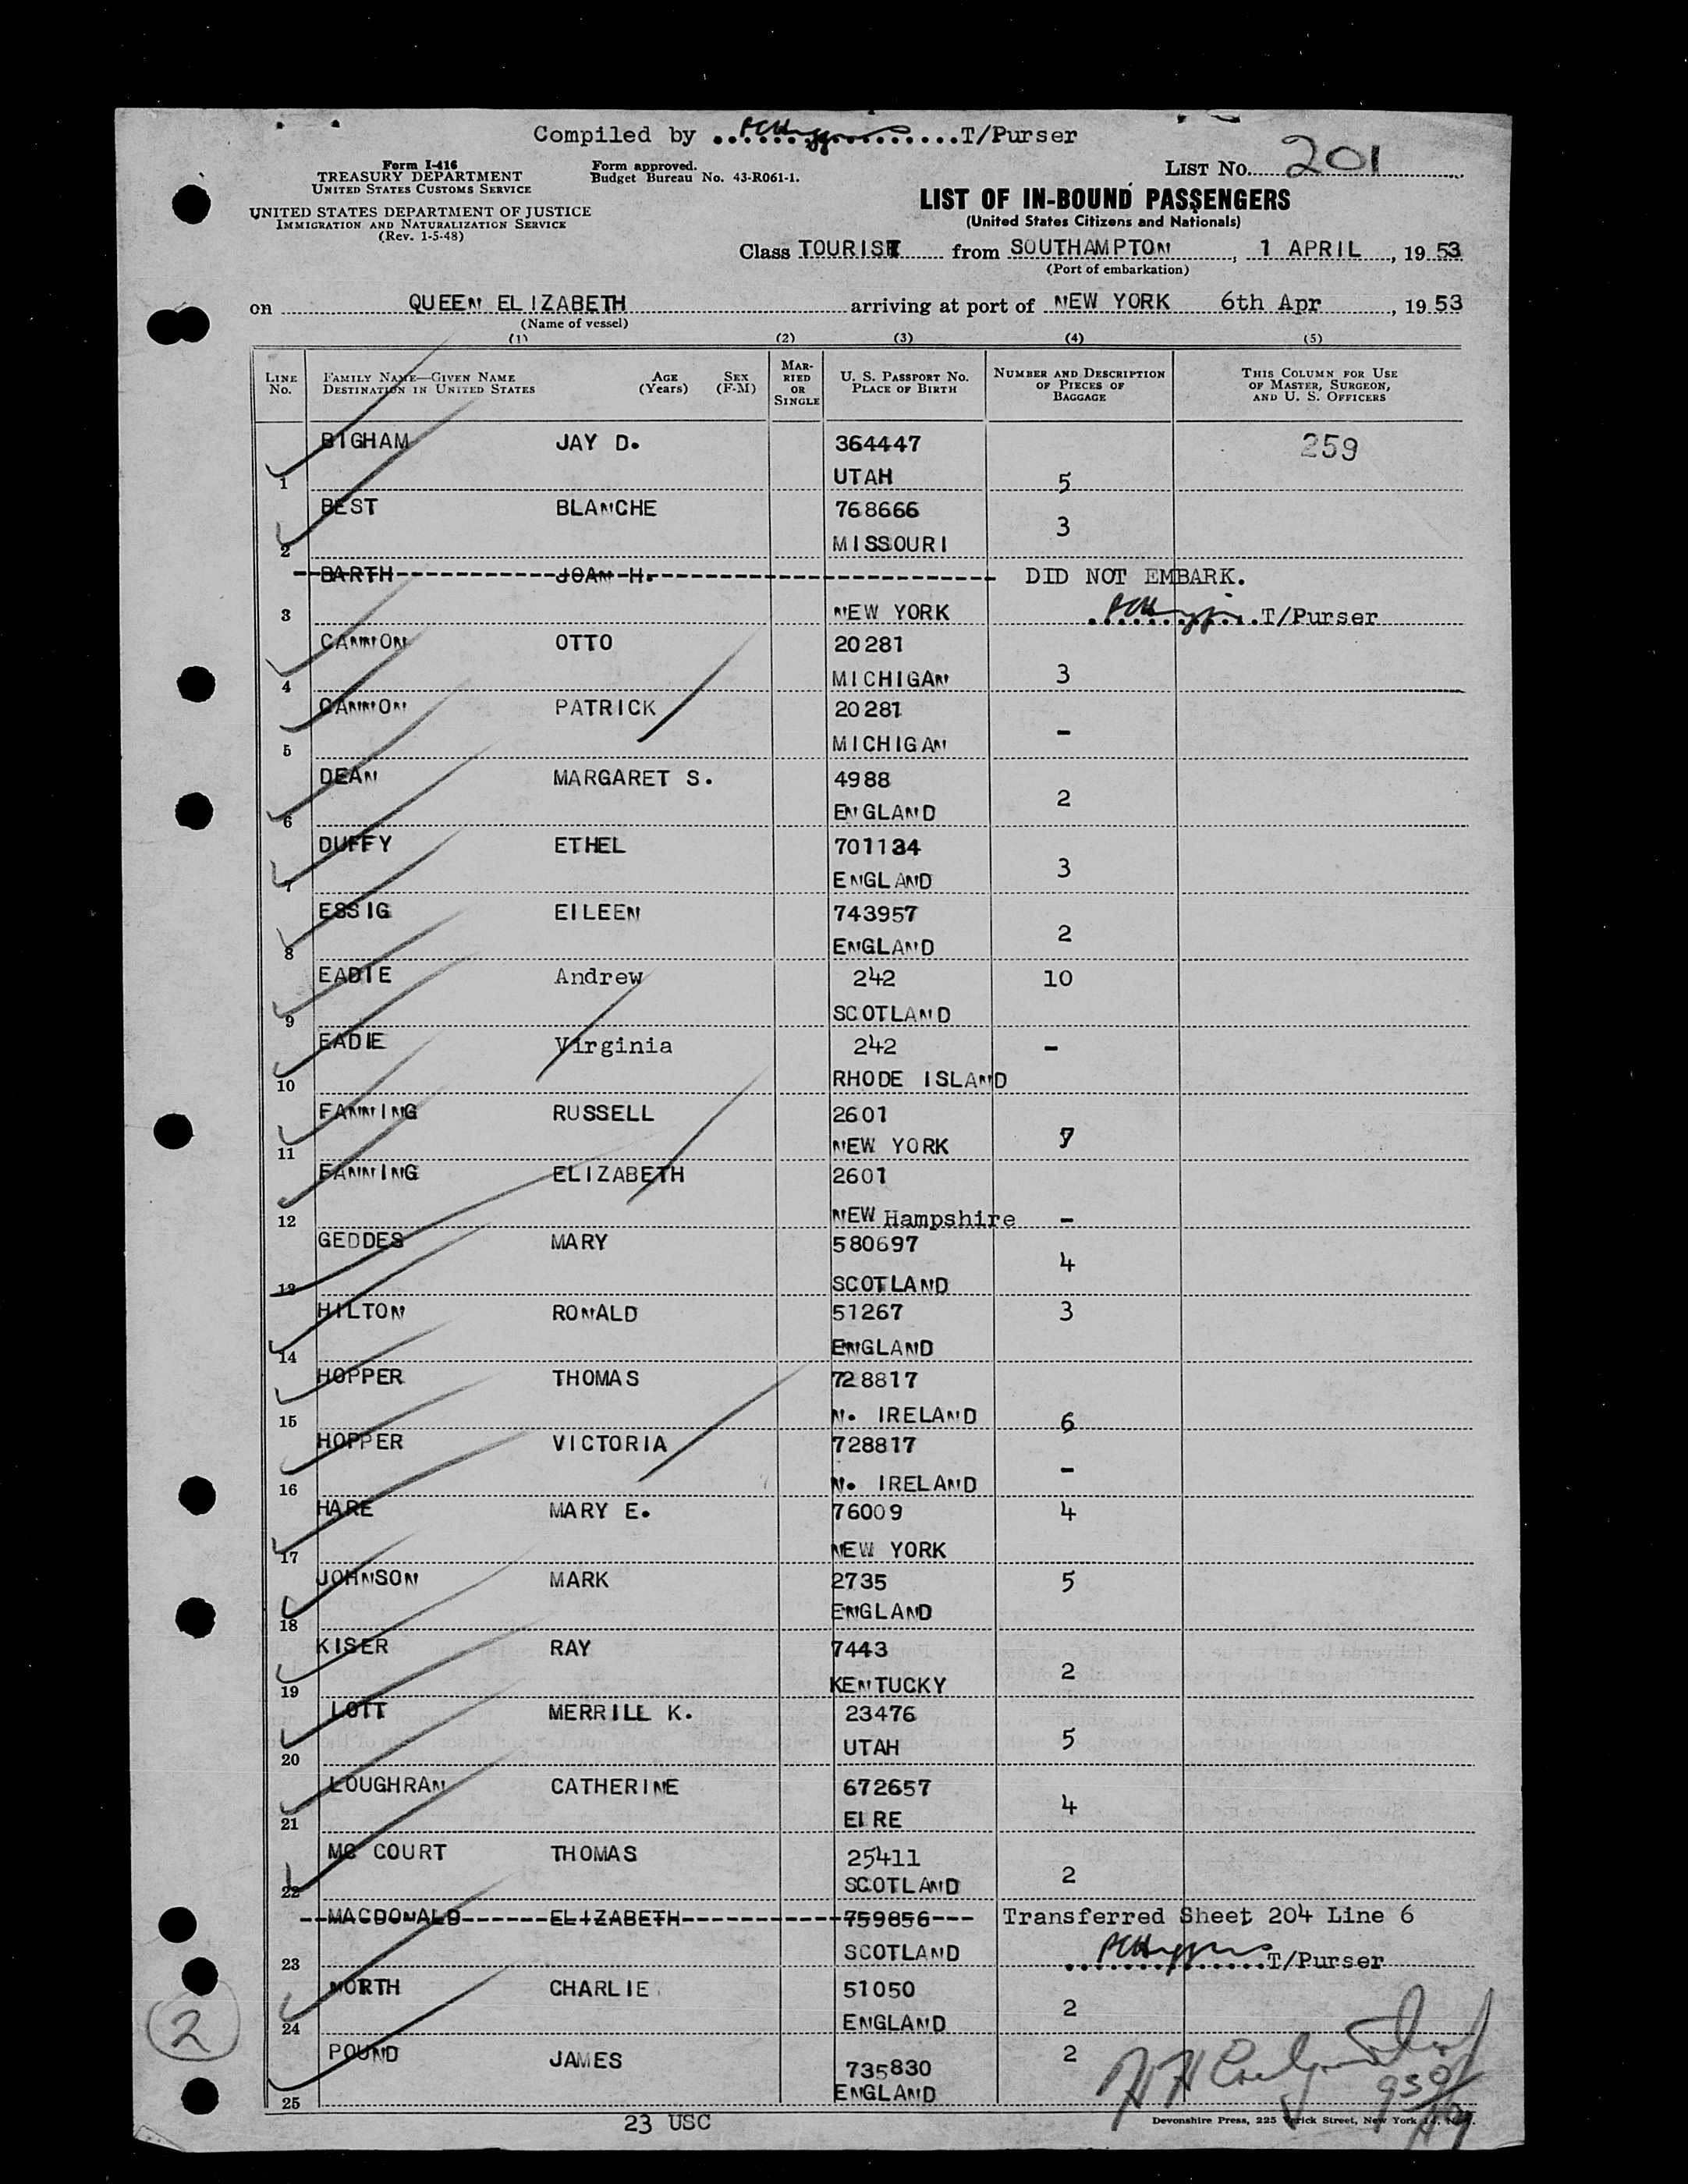 Compiled by ....................T/Purser
Form I-416
TREASURY DEPARTMENT
UNITED STATES CUSTOMS SERVICE
UNITED STATES DEPARTMENT OF JUSTICE
IMMIGRATION AND NATURALIZATION SERVICE
(Rev. 1-5-48)
Form approved.
Budget Bureau No. 43-R061-1.
LIST No. 201
LIST OF IN-BOUND PASSENGERS
(United States Citizens and Nationals)
Class TOURIST from SOUTHAMPTON, 1 APRIL, 1953
(Port of embarkation)
on QUEEN ELIZABETH arriving at port of NEW YORK 6th Apr, 1953
(Name of vessel)
(1) (2) (3) (4) (5)
LINE No. FAMILY NAME—GIVEN NAME DESTINATION IN UNITED STATES AGE (Years) SEX (F-M) MARRIED OR SINGLE U. S. PASSPORT No. PLACE OF BIRTH NUMBER AND DESCRIPTION OF PIECES OF BAGGAGE THIS COLUMN FOR USE OF MASTER, SURGEON, AND U. S. OFFICERS
BIGHAM JAY D. 364447 259
1 UTAH 5
BEST BLANCHE 768666 3
2 MISSOURI
BARTH JOAN H. DID NOT EMBARK.
3 NEW YORK T/Purser
CANNON OTTO 20281
4 MICHIGAN 3
CANNON PATRICK 20281
5 MICHIGAN -
DEAN MARGARET S. 4988
6 ENGLAND 2
DUFFY ETHEL 701134
7 ENGLAND 3
ESSIG EILEEN 743957
8 ENGLAND 2
EADIE Andrew 242 10
9 SCOTLAND
EADIE Virginia 242 -
10 RHODE ISLAND
FANNING RUSSELL 2601
11 NEW YORK 7
FANNING ELIZABETH 2601
12 NEW Hampshire -
GEDDES MARY 580697
13 SCOTLAND 4
HILTON RONALD 51267 3
14 ENGLAND
HOPPER THOMAS 728817
15 N. IRELAND 6
HOPPER VICTORIA 728817
16 N. IRELAND -
HARE MARY E. 76009 4
17 NEW YORK
JOHNSON MARK 2735 5
18 ENGLAND
KISER RAY 7443
19 KENTUCKY 2
LOTT MERRILL K. 23476
20 UTAH 5
LOUGHRAN CATHERINE 672657
21 EIRE 4
MC COURT THOMAS 25411
22 SCOTLAND 2
MACDONALD ELIZABETH 759856 Transferred Sheet 204 Line 6
23 SCOTLAND T/Purser
NORTH CHARLIE 51050
24 ENGLAND 2
POUND JAMES 735830 2
25 ENGLAND
2
23 USC
Devonshire Press, 225 Varick Street, New York 14, N.Y.